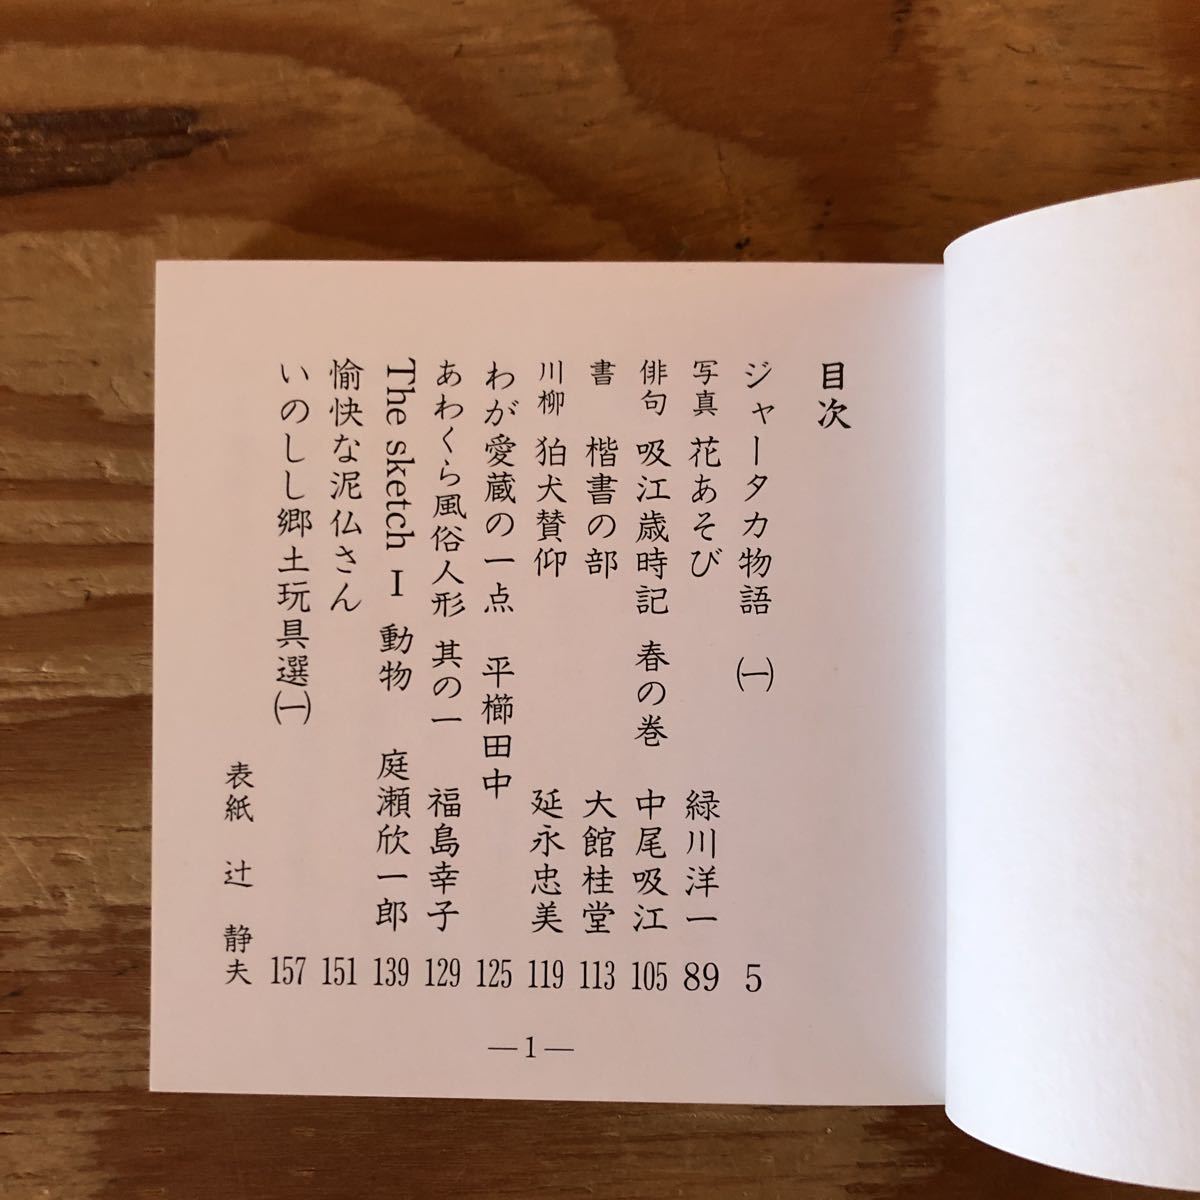 目次
ジャータカ物語 ㈠ 5
写真 花あそび 緑川洋一 89
俳句 吸江歳時記 春の巻 中尾吸江 105
書 楷書の部 大館桂堂 113
川柳 狛犬賛仰 延永忠美 119
わが愛蔵の一点 平櫛田中 125
あわくら風俗人形 其の一 福島幸子 129
The sketch I 動物 庭瀬欣一郎 139
愉快な泥仏さん 151
いのしし郷土玩具選㈠ 157
表紙 辻 静夫
—1—